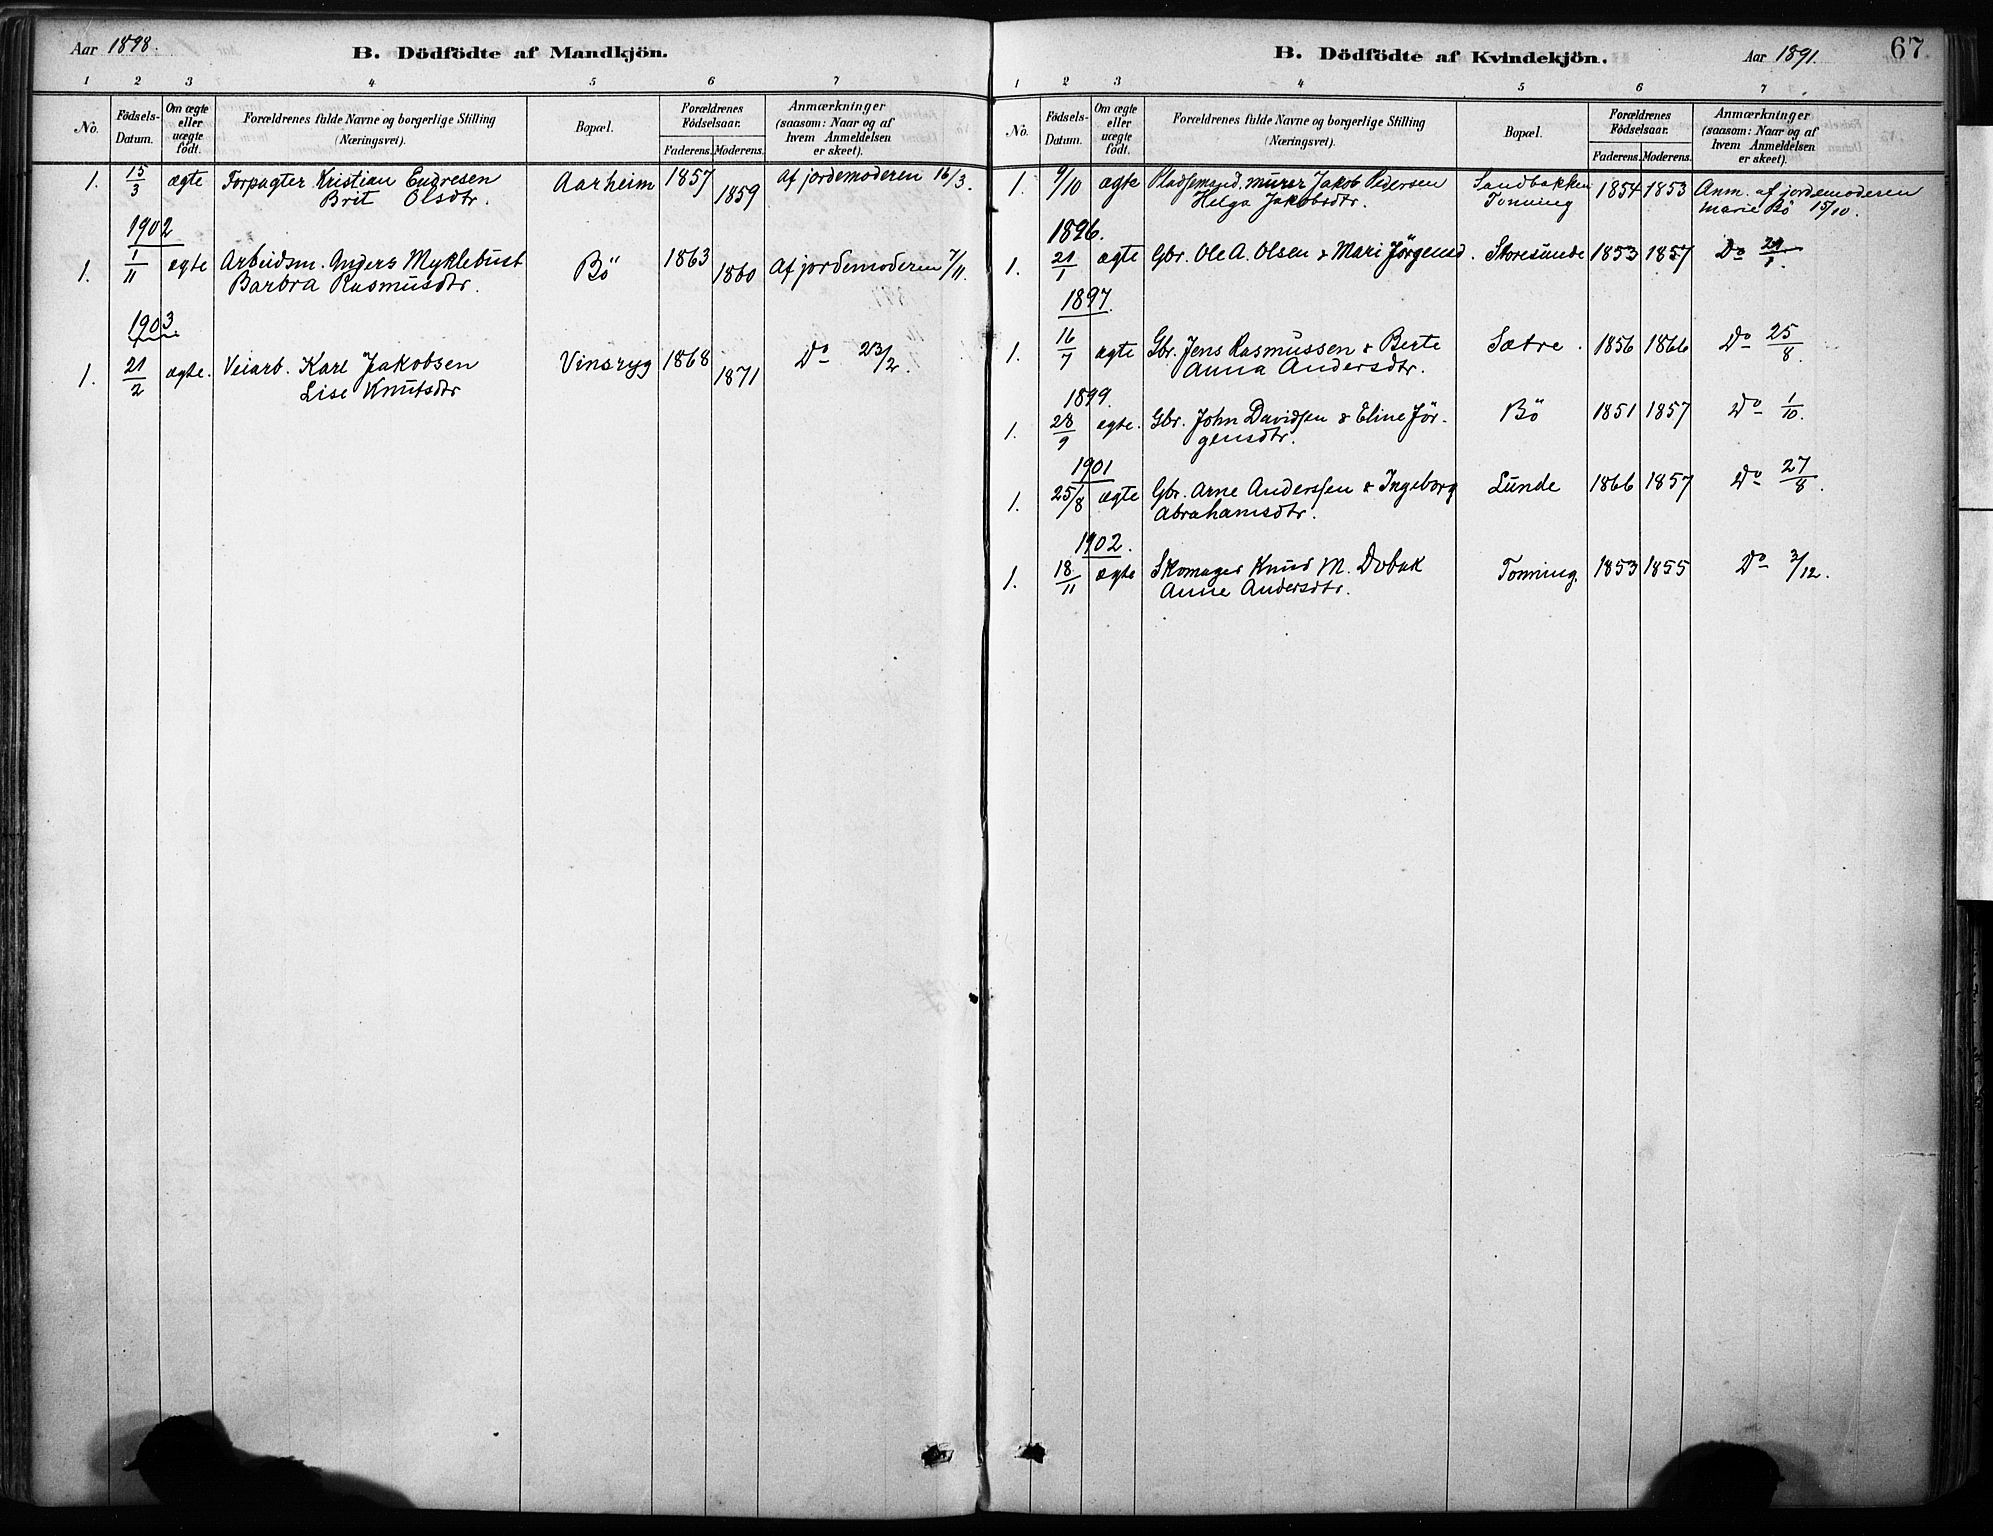 Aar 1898. B. Dödfödte af Mandkjön.
1 2 3 4 5 6 7
No. Födsels-Datum. Om ægte eller uægte födt. Forældrenes fulde Navne og borgerlige Stilling (Næringsvei). Bopæl. Forældrenes Födselsaar. Faderens. Moderens. Anmærkninger (saasom: Naar og af hvem Anmeldelsen er skeet).
1. 15/3 ægte Forpagter Kristian Endresen Aarheim 1857 1859 Af jordemoderen 16/3.
Brit Olsdtr.
1902
1. 1/11 ægte Arbeidsm. Anders Myklebust Bö 1863 1860 Af jordemoderen 7/11.
Barbra Rasmusdtr.
1903
1. 21/2 ægte. Veiarb. Karl Jakobsen Vinsryg 1868 1871 Do 23/2.
Lise Knutsdtr
B. Dödfödte af Kvindekjön. Aar 1891. 67
1 2 3 4 5 6 7
No. Födsels-Datum. Om ægte eller uægte födt. Forældrenes fulde Navne og borgerlige Stilling (Næringsvei). Bopæl. Forældrenes Födselsaar. Faderens. Moderens. Anmærkninger (saasom: Naar og af hvem Anmeldelsen er skeet).
1. 9/10 ægte Pladsemand, murer Jakob Pedersen Sandbakken 1854 1853 Anm. af jordemoderen
Helga Jakobsdtr. Tonning Marie Bö 15/10.
1896.
1. 21/1 ægte Gbr. Ole A. Olsen & Mari Jörgensd. Storesunde 1853 1857 Do 29/1.
1897.
1. 16/7 ægte Gbr. Jens Rasmussen & Berte Sætre. 1856 1866 Do 25/8.
Anna Andersdtr.
1899.
1. 28/9 ægte. Gbr. John Davidsen & Eline Jör- Bö 1851 1857 Do 1/10.
gensdtr.
1901
1. 25/8 ægte Gbr. Arne Anderssen & Ingeborg Lunde 1866 1857 Do 27/8.
Abrahamsdtr.
1902.
1. 18/11 ægte Skomager Knud M. Dvbak Tonning. 1853 1855 Do 3/12.
Anne Andersdtr.